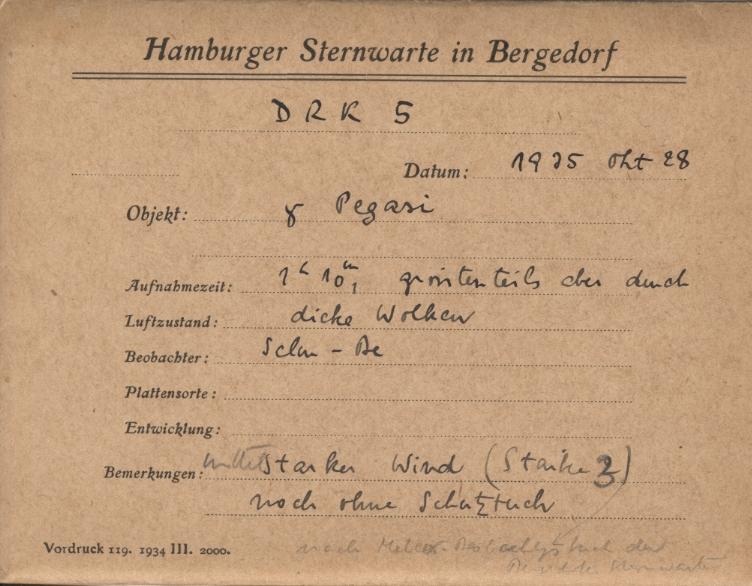 Hamburger Sternwarte in Bergedorf
DRK 5
Datum: 1935 Okt 28
Objekt: γ Pegasi
Aufnahmezeit: 1h 10m, grösstenteils aber durch
Luftzustand: dicke Wolken
Beobachter: Schm - Be
Plattensorte:
Entwicklung:
Bemerkungen: mittelstarker Wind (Stärke 3)
noch ohne Schutztuch
Vordruck 119. 1934 III. 2000.
nach der
Sternwarte